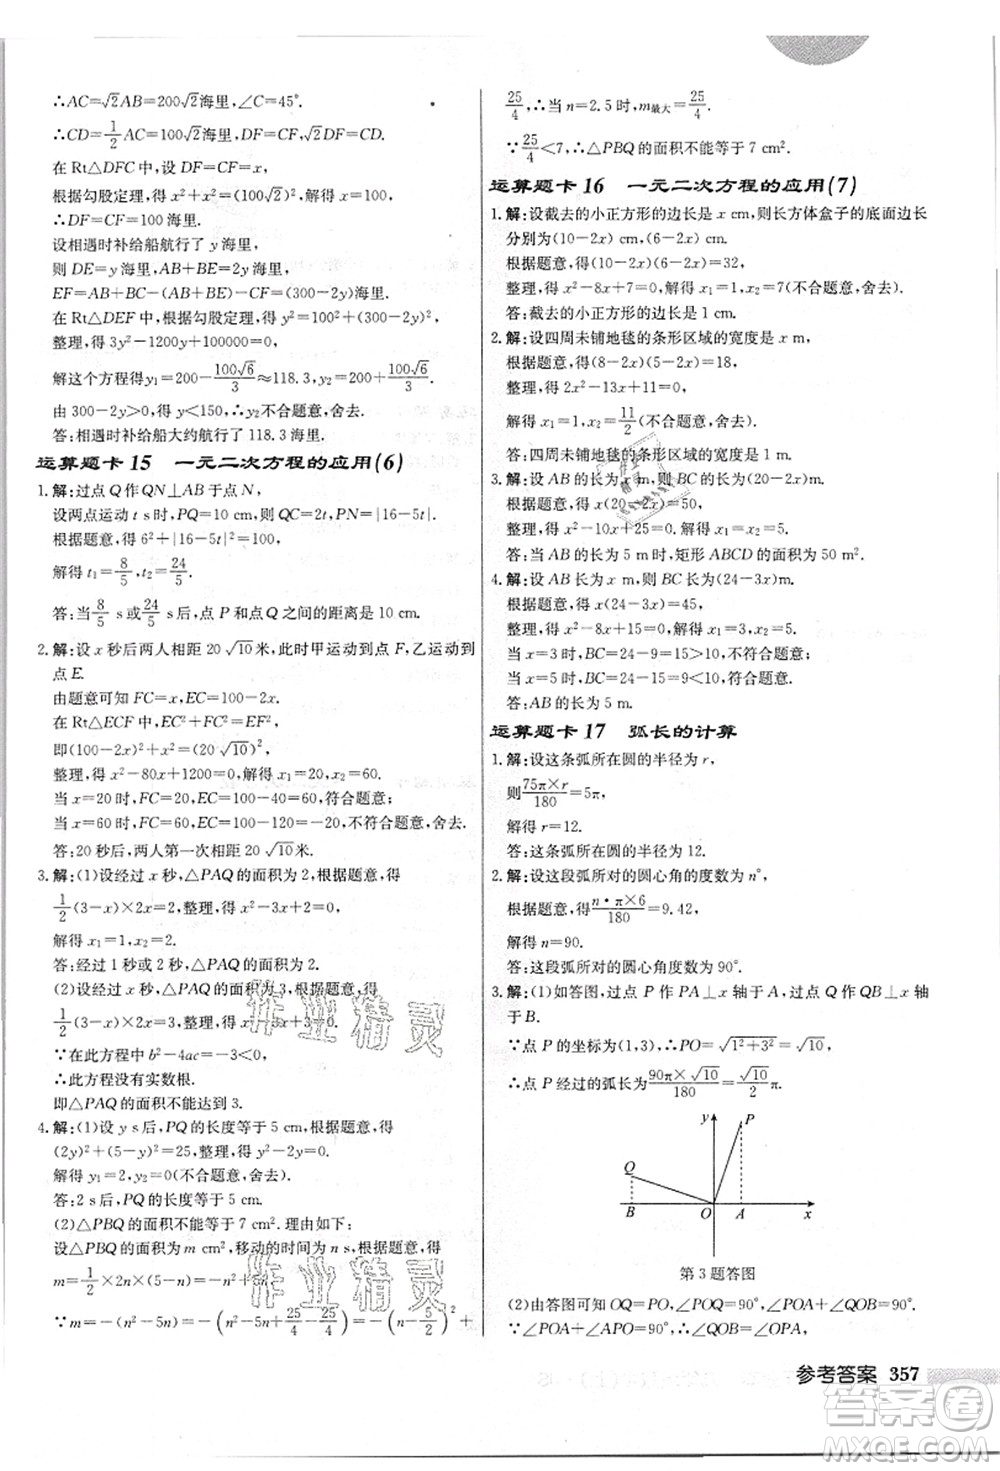 ∴AC=√2AB=200√2海里,∠C=45°.
∴CD=1/2AC=100√2海里,DF=CF,√2DF=CD.
在Rt△DFC中,设DF=CF=x,
根据勾股定理,得x²+x²=(100√2)².
∴DF=CF=100海里.
设相遇时补给船航行了y海里,
则DE=y海里,AB+BE=2y海里,
EF=AB+BC-(AB+BE)-CF=(300-2y)海里.
在Rt△DEF中,根据勾股定理,得y²=100²+(300-2y)².
整理,得3y²-1200y+100000=0.
解这个方程得y₁=200-100√6/3≈118.3,y₂=200+100√6/3.
由300-2y>0,得y<150,∴y₂不合题意,舍去.
答:相遇时补给船大约航行了118.3海里.
运算题卡15 一元二次方程的应用(6)
1.解:过点Q作QN⊥AB于点N,
设两点运动t s时,PQ=10 cm,则QC=2t,PN=|16-5t|,
根据题意,得6²+|16-5t|²=100,
解得t₁=8/5,t₂=24/5.
答:当8/5 s或24/5 s后,点P和点Q之间的距离是10 cm.
2.解:设x秒后两人相距20√10米,此时甲运动到点F,乙运动到
点E.
由题意可知FC=x,EC=100-2x.
在Rt△ECF中,EC²+FC²=EF²,
即(100-2x)²+x²=(20√10)².
整理,得x²-80x+1200=0.解得x₁=20,x₂=60.
当x=20时,FC=20,EC=100-40=60,符合题意;
当x=60时,FC=60,EC=100-120=-20,不符合题意,舍去.
答:20秒后,两人第一次相距20√10米.
3.解:(1)设经过x秒,△PAQ的面积为2,根据题意,得
1/2(3-x)×2x=2,整理,得x²-3x+2=0.
解得x₁=1,x₂=2.
答:经过1秒或2秒后,△PAQ的面积为2.
(2)设经过x秒,△PAQ的面积为3,根据题意,得
1/2(3-x)×2x=3,整理,得x²-3x+3=0.
∵在此方程中b²-4ac=-3<0,
∴此方程没有实数根.
即△PAQ的面积不能达到3.
4.解:(1)设y s后,PQ的长度等于5 cm,根据题意,得
(2y)²+(5-y)²=25,整理,得y²-2y=0.
解得y₁=0(不合题意,舍去),y₂=2.
答:2 s后,PQ的长度等于5 cm.
(2)△PBQ的面积不能等于7 cm².理由如下:
设△PBQ的面积为m cm²,移动的时间为n s,根据题意,得
m=1/2×2n×(5-n)=-n²+5n.
∵m=-(n²-5n)=-(n²-5n+25/4-25/4)=-(n-5/2)²+
25/4,∴当n=2.5时,m最大=25/4.
∵25/4<7,∴△PBQ的面积不能等于7 cm².
运算题卡16 一元二次方程的应用(7)
1.解:设截去的小正方形的边长是x cm,则长方体盒子的底面边长
分别为(10-2x) cm,(6-2x) cm.
根据题意,得(10-2x)(6-2x)=32,
整理,得x²-8x+7=0.解得x₁=1,x₂=7(不合题意,舍去).
答:截去的小正方形的边长是1 cm.
2.解:设四周未铺地毯的条形区域的宽度是x m,
根据题意,得(8-2x)(5-2x)=18,
整理,得2x²-13x+11=0,
解得x₁=1,x₂=11/2(不合题意,舍去).
答:四周未铺地毯的条形区域的宽度是1 m.
3.解:设AB的长为x m,则BC的长为(20-2x) m.
根据题意,得x(20-2x)=50,
整理,得x²-10x+25=0.解得x₁=x₂=5.
答:当AB的长为5 m时,矩形ABCD的面积为50 m².
4.解:设AB长为x m,则BC长为(24-3x)m.
根据题意,得x(24-3x)=45,
整理,得x²-8x+15=0,解得x₁=3,x₂=5.
当x=3时,BC=24-9=15>10,不合题意,舍去;
当x=5时,BC=24-15=9<10,符合题意.
答:AB的长为5 m.
运算题卡17 弧长的计算
1.解:设这条弧所在圆的半径为r,
则75π×r/180=5π,
解得r=12.
答:这条弧所在圆的半径为12.
2.解:设这段弧所对的圆心角的度数为n°,
根据题意,得n·π×6/180=9.42,
解得n=90.
答:这段弧所对的圆心角的度数为90°.
3.解:(1)如答图,过点P作PA⊥x轴于A,过点Q作QB⊥x轴
于B.
∵点P的坐标为(1,3),∴PO=√1²+3²=√10.
∴点P经过的弧长为90π×√10/180=√10/2π.
y P
Q
B O A x
第3题答图
(2)由答图可知OQ=PO,∠POQ=90°,
∵∠POA+∠APO=90°,∴∠QOB=∠OPA,
参考答案 357
作业精灵
作业精灵
答案圈
MXQE.COM